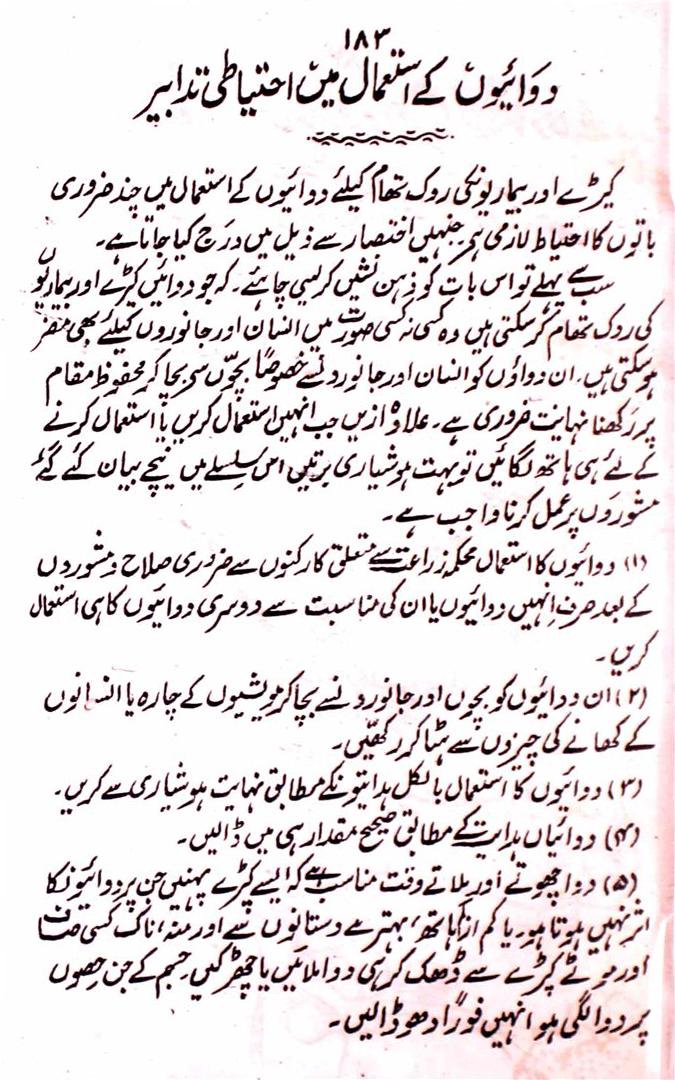 ۱۸۳
دوائیوں کے استعمال میں احتیاطی تدابیر
کیڑے اور بیماریونکی روک تھام کیلئے دوائیوں کے استعمال میں چند ضروری
باتوں کا احتیاط لازمی ہے جنہیں اختصار سے ذیل میں درج کیا جاتا ہے۔
سب سے پہلے تو اس بات کو ذہن نشیں کر لیسی چاہئے۔ کہ جو دوائیں کیڑے اور بیماریوں
کی روک تھام کر سکتی ہیں وہ کسی نہ کسی صورت میں انسان اور جانوروں کیلئے بھی مضر
ہو سکتی ہیں۔ ان دواؤں کو انسان اور جانورونسے خصوصاً بچّوں سے بچا کر محفوظ مقام
پر رکھنا نہایت ضروری ہے۔ علاوہ ازیں جب انہیں استعمال کریں یا استعمال کرنے
کے لئے ہی ہاتھ لگائیں تو بہت ہوشیاری برتیں اس سلسلے میں نیچے بیان کئے گئے
مشوروں پر عمل کرنا واجب ہے۔
(۱) دوائیوں کا استعمال محکمہ زراعت سے متعلق کارکنوں سے ضروری صلاح و مشوروں
کے بعد صرف اِنہیں دوائیوں یا ان کی مناسبت سے دوسری دوائیوں کا ہی استعمال
کریں۔
(۲) ان دوائیوں کو بچوں اور جانورونسے بچا کر مویشیوں کے چارہ یا انسانوں
کے کھانے کی چیزوں سے ہٹا کر رکھیں۔
(۳) دوائیوں کا استعمال بالکل ہدایتونکے مطابق نہایت ہوشیاری سے کریں۔
(۴) دوائیاں ہدایت کے مطابق صحیح مقدار ہی میں ڈالیں۔
(۵) دوا چھوتے اور ملاتے وقت مناسب ہے کہ ایسے کپڑے پہنیں جن پر دوائیونکا
اثر نہیں ہوتا ہو۔ یا کم از کم ہاتھ، بہتر ہے دستانوں سے اور منہ، ناک کسی صاف
اور موٹے کپڑے سے ڈھک کر ہی دوا ملائیں یا چھڑکیں۔ جسم کے جن حصوں
پر دوا لگی ہو انہیں فوراً دھو ڈالیں۔